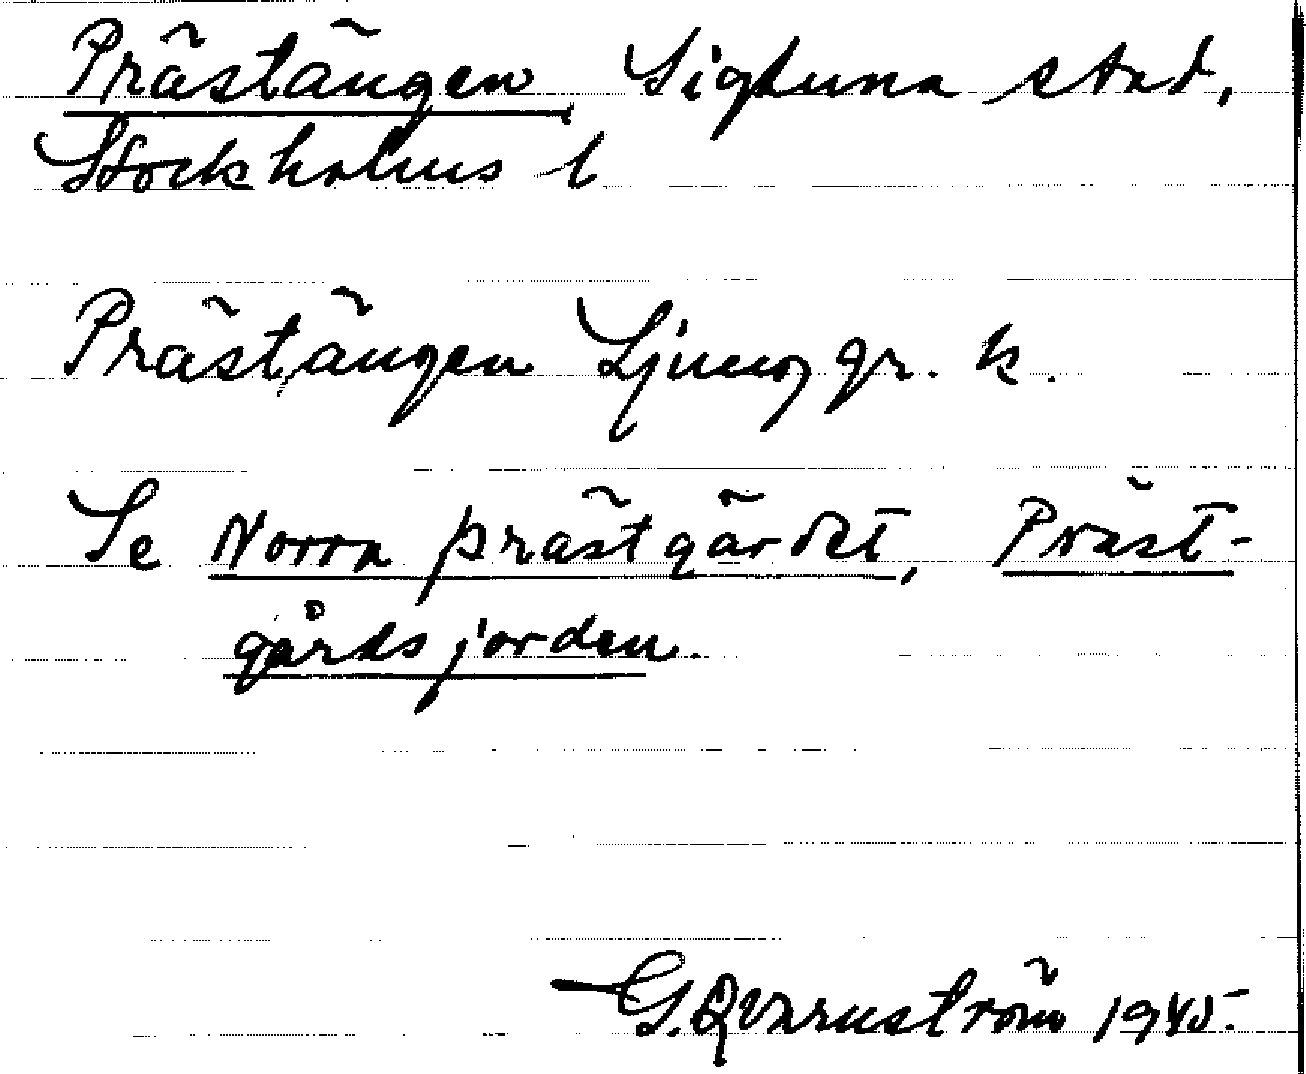 Prästängen, Sigtuna stad,
Stockholms l
Prästängen Ljung gr. k.
Se Norra prästgärdet, Präst-
gårdsjorden.
G. Qvarnström 1945.